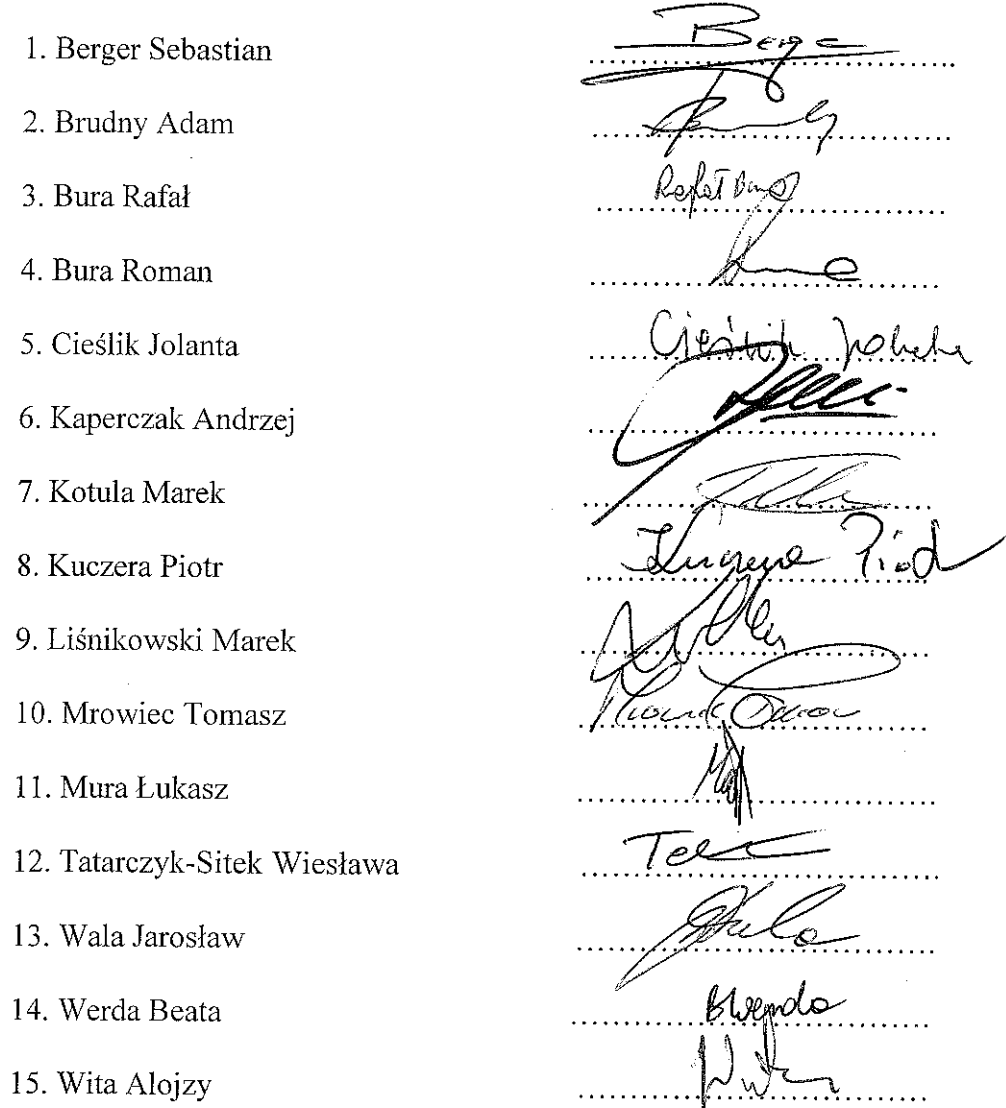 1. Berger Sebastian Berge
2. Brudny Adam
3. Bura Rafał Rafał Bura
4. Bura Roman
5. Cieślik Jolanta Cieślik Jolanta
6. Kaperczak Andrzej
7. Kotula Marek
8. Kuczera Piotr Kuczera Piotr
9. Liśnikowski Marek
10. Mrowiec Tomasz
11. Mura Łukasz
12. Tatarczyk-Sitek Wiesława
13. Wala Jarosław
14. Werda Beata BWerda
15. Wita Alojzy